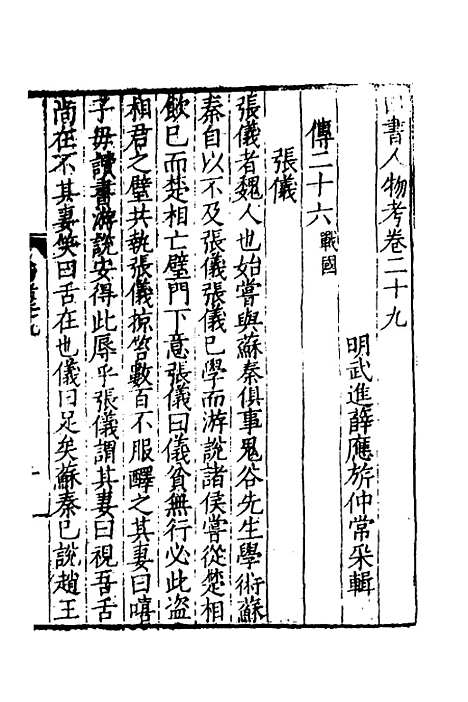 書人物考卷二十九
明武進薛應旂仲常采輯
傳二十六戰國
張儀
張儀者魏人也始嘗與蘇秦俱事鬼谷先生學術蘇
秦自以不及張儀張儀已學而游說諸侯嘗從楚相
飲已而楚相亡璧門下意張儀曰儀貧無行必此盜
相君之璧共執張儀掠笞數百不服醳之其妻曰嘻
子毋讀書游說安得此辱乎張儀謂其妻曰視吾舌
尚在不其妻笑曰舌在也儀曰足矣蘇秦已說趙王